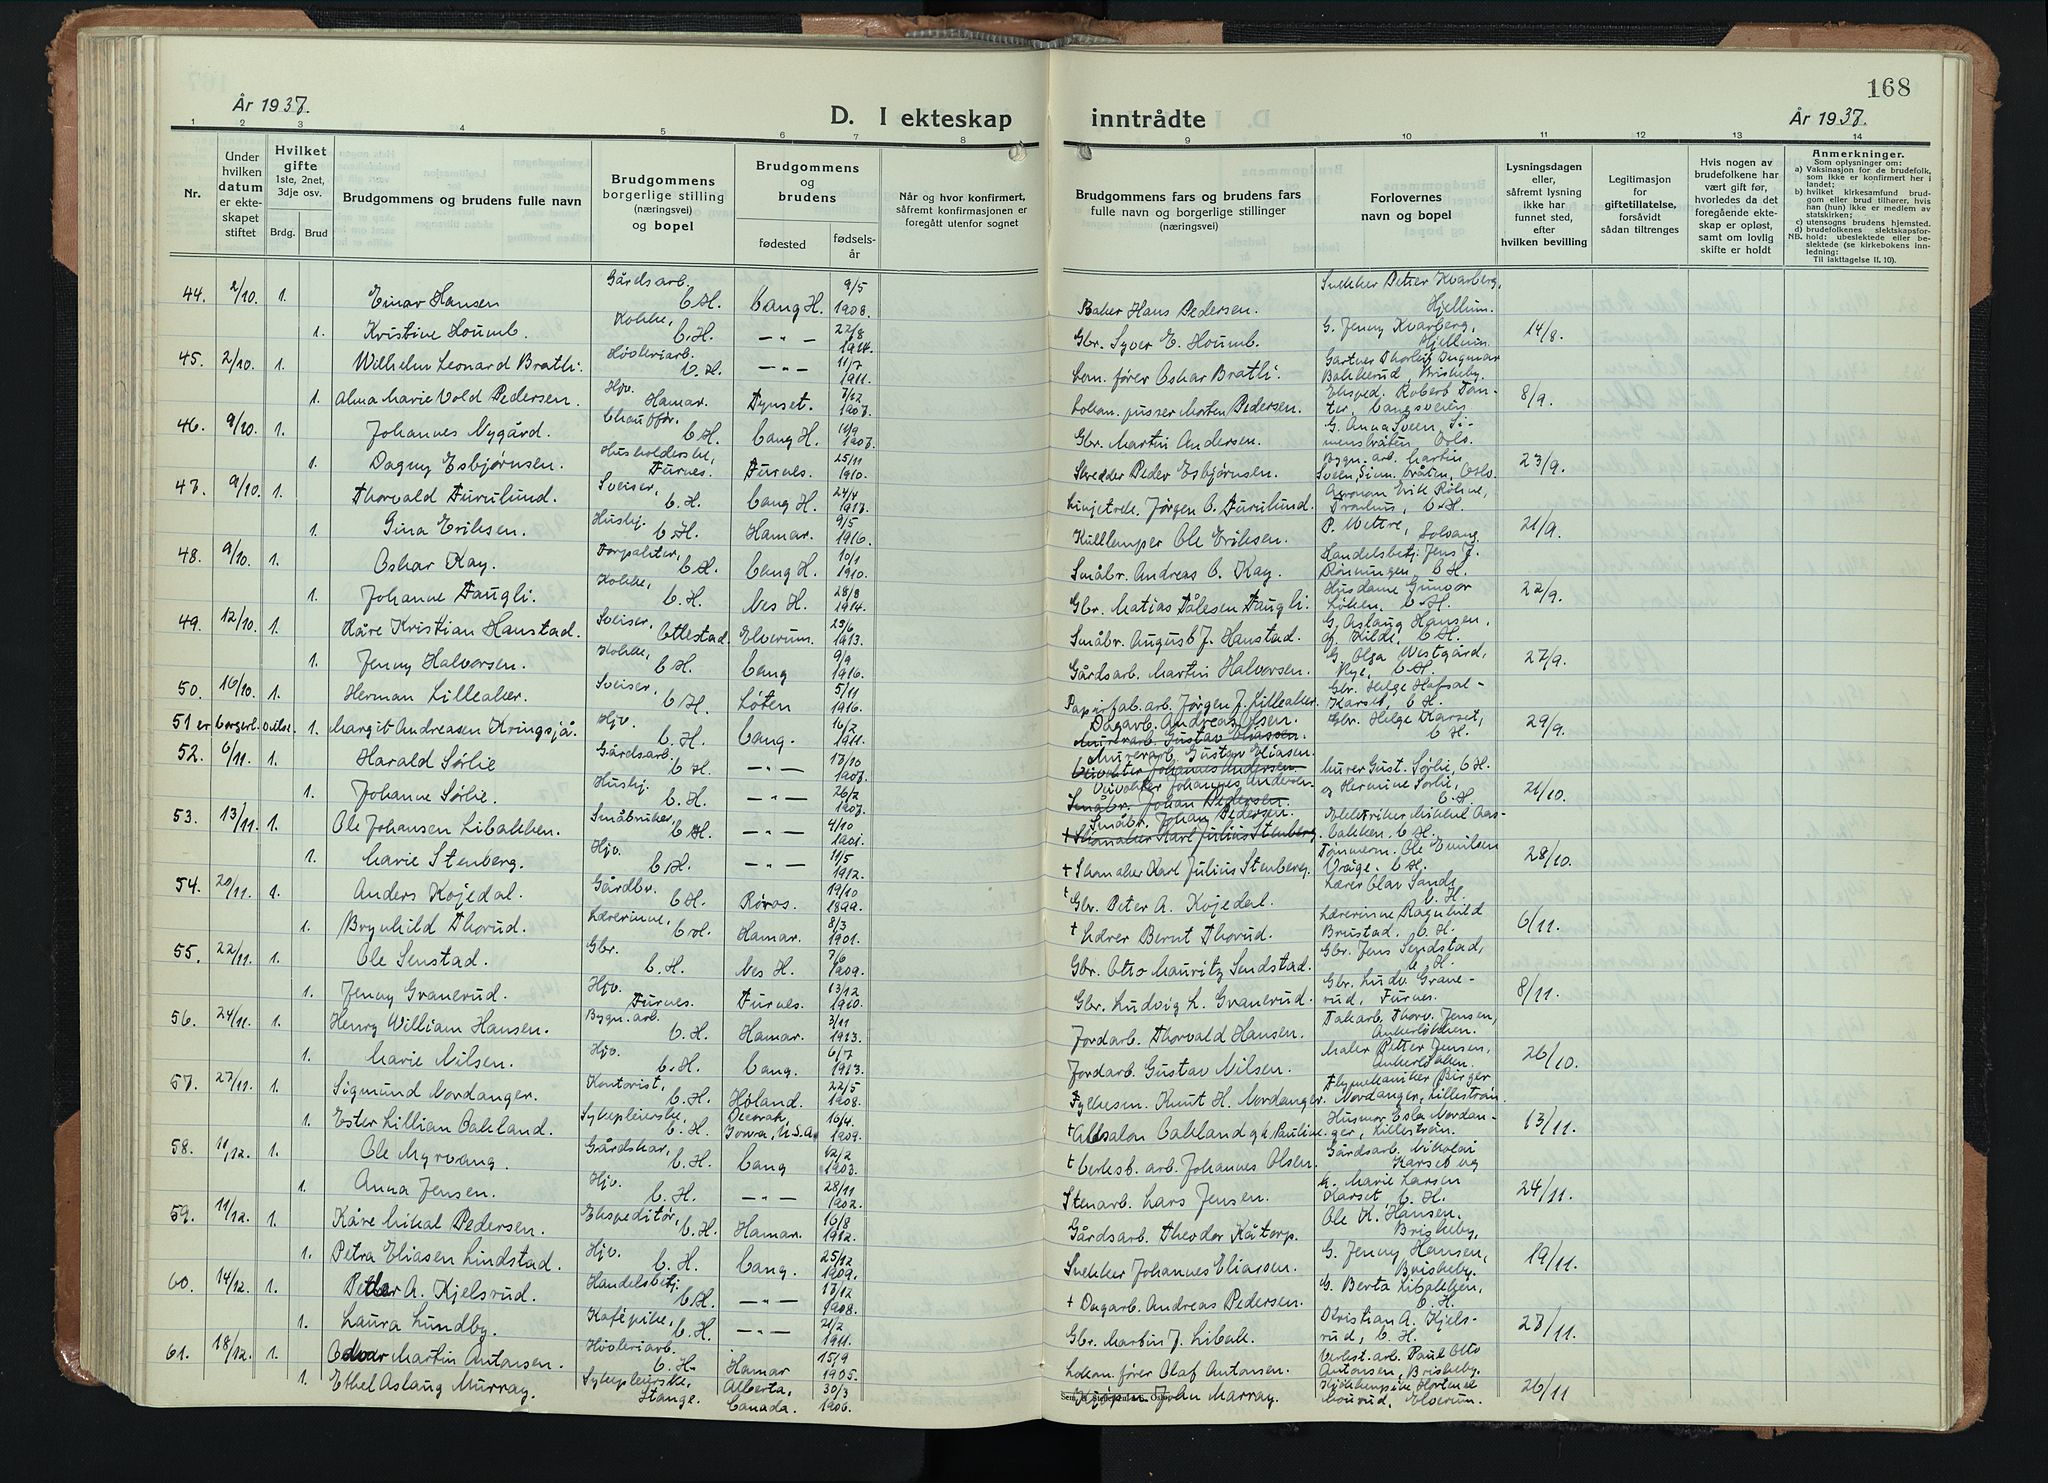 168
År 1937.
D. I ekteskap inntrådte
År 1937.
1 2 3 4 5 6 7 8 9 10 11 12 13 14
Nr.
Under hvilken datum er ekteskapet stiftet
Hvilket gifte 1ste, 2net, 3dje osv.
Brdg. Brud
Brudgommens og brudens fulle navn
Brudgommens borgerlige stilling (næringsvei) og bopel
Brudgommens og brudens
fødested
fødselsår
Når og hvor konfirmert, såfremt konfirmasjonen er foregått utenfor sognet
Brudgommens fars og brudens fars fulle navn og borgerlige stillinger (næringsvei)
Forlovernes navn og bopel
Lysningsdagen eller, såfremt lysning ikke har funnet sted, efter hvilken bevilling
Legitimasjon for giftetillatelse, forsåvidt sådan tiltrenges
Hvis nogen av brudefolkene har vært gift før, hvorledes da det foregående ekteskap er opløst, samt om lovlig skifte er holdt
Anmerkninger.
Som oplysninger om:
a) Vaksinasjon for de brudefolk, som ikke er konfirmert her i landet;
b) hvilket kirkesamfund brudgom eller brud tilhører, hvis han (hun) ikke er medlem av statskirken;
c) utensogns brudens hjemsted.
d) brudefolkenes slektskapsforhold: ubeslektede eller beslektede (se kirkebokens innledning:
NB. Til iakttagelse II. 10).
44. 2/10. 1. Einar Hansen Gårdsarb. V.H. Vang H. 9/5 1908. Baker Hans Pedersen. Snekker Petter Kvarberg, Hjellum.
1. Kristine Houmb. Kokke, V.H. — " — 22/8 1914. Gbr. Syver E. Houmb. G. Jenny Kvarberg, Hjellum. 14/8.
45. 2/10. 1. Wilhelm Leonard Bratli. Høvleriarb. V.H. — " — 11/7 1911. Lom. fører Oskar Bratli. Gartner Thorleif Ingmar Bakkerud, Briskeby.
1. Alma Marie Vold Pedersen. Hjv. Hamar. Tynset. 1907. Lokom. pusser Morten Pedersen. Eksped. Robert Tanter, Vangsveien 8/9.
46. 9/10. 1. Johannes Nygård. Chauffør, V.H. Vang H. 14/9 1907. Gbr. Martin Andersen. G. Anna Sveen, Simensbråten, Oslo.
1. Dagny Esbjørnsen. Husholderske, Furnes. Furnes. 25/11 1910. Skredder Peder Esbjørnsen. Bygn. arb. Martin Sveen, Sim. bråten, Oslo 23/9.
47. 9/10. 1. Thorvald Furulund. Sveiser, V.H. Vang H. 24/4 1913. Linjetrek. Jørgen O. Furulund. Agronom Erik Røhne, V.H.
1. Gina Eriksen. Hushj. V.H. Hamar. 9/5 1916. Kullemper Ole Eriksen. P. Wettre, Solvang. 21/9.
48. 9/10. 1. Oskar Kay. Forpakter, V.H. Vang H. 10/1 1910. Småbr. Andreas O. Kay. Handelsbetj. Jens J. Rønningen V.H.
1. Johanne Faugli. Kokke, V.H. Nes H. 28/8 1914. Gbr. Matias Pålesen Faugli. Husdame Gunvor Løken. V.H. 22/9.
49. 12/10. 1. Kåre Kristian Hanstad. Sveiser, Ottestad. Elverum. 29/6 1913. Småbr. August J. Hanstad. G. Aslaug Hansen, V.H.
1. Jenny Halvorsen. Kokke, V.H. Vang 9/9 1916. Gårdsarb. Martin Halvorsen. G. Olga Westgård, Rye, V.H. 27/9.
50. 16/10. 1. Herman Lilleaker. Sveiser, V.H. Løten 5/11 1916. Papirfab. arb. Jørgen J. Lilleaker. Gbr. Helge Hafsal-Karset, V.H.
51 er borgerl. vielse. 1. Margit Andreasen Kringsjå. Hjv. V.H. Vang. 16/2 1911. Dagarb. Andreas Olsen. Gbr. Helge Karset, V.H. 29/9.
52. 6/11. 1. Harald Sørlie Gårdsarb. V.H. — " — 13/10 1907. Murerarb. Gustav Eliasen. Murer Gust. Sørlie, V.H.
1. Johanne Sørlie. Hushj. V.H. — " — 26/2 1907. Johannes Andersen. og Hermine Sørlie, V.H. 21/10.
53. 13/11. 1. Ole Johansen Libakken. Småbruker, V.H. — " — 4/10 1901. Småbr. Johan Pedersen. Elektriker Mikkel Aasbakken. V.H.
1. Marie Stenberg. Hjv. V.H. — " — 11/5 1912. † Skomaker Karl Julius Stenberg. Tømmerm. Ole Emilsen V.H. 28/10.
54. 20/11. 1. Anders Kojedal. Gårdbr. V.H. Røros. 19/10 1899. † Gbr. Peter A. Kojedal. Lærer Olav Sande V.H.
1. Brynhild Thorud. Lærerinne, V.H. Hamar. 8/3 1901. † Lærer Bernt Thorud. Lærerinne Ragnhild Brustad. V.H. 6/11.
55. 22/11. 1. Ole Senstad. Gbr. V.H. Nes H. 7/6 1909. Gbr. Otto Mauritz Sendstad. Gbr. Jens Sendstad, V.H.
1. Jenny Granerud. Hjv. Furnes. Furnes. 13/12 1910. Gbr. Ludvig L. Granerud. Gbr. Ludv. Granerud, Furnes. 8/11.
56. 24/11. 1. Henry William Hansen. Bygn. arb. V.H. Hamar. 3/11 1913. Jordarb. Thorvald Hansen. Takarb. Thorv. Jensen, Ankerløkken.
1. Marie Nilsen. Hjv. V.H. Vang. 6/7 1913. Jordarb. Gustav Nilsen. Maler Petter Jensen, Ankerløkken. 26/10.
57. 27/11. 1. Sigmund Nordanger. Kontorist, V.H. Høland. 22/5 1908. Fylkesm. Knut H. Nordanger. Flymekaniker Birger Nordanger, Lillestrøm.
1. Ester Lillian Oakland. Sykepleierske, V.H. Decorah, Iowa, U.S.A. 16/4 1909. † Absalon Oakland g.h. Pauline. Husmor Esla Nordanger, Lillestrøm. 13/11.
58. 11/12. 1. Ole Myrvang. Gårdskar, V.H. Vang 12/2 1903. † Verkst. arb. Johannes Olsen. Gårdsarb. Nikolai Karset og
1. Anna Jensen. Hjv. V.H. — " — 28/11 1902. Stenarb. Lars Jensen. h. Marie Larsen Karset, V.H. 24/11.
59. 11/12. 1. Kåre Mikal Pedersen. Ekspeditør, V.H. Hamar. 16/8 1912. Gårdsarb. Theodor Kåtorp. Ole K. Hansen. Briskeby,
1. Petra Eliasen Lindstad. Hjv. V.H. Vang. 25/12 1909. Snekker Johannes Eliasen. G. Jenny Hansen, Briskeby. 19/11.
60. 14/12. 1. Petter A. Kjelsrud. Handelsbetj. V.H. — " — 13/12 1908. † Dagarb. Andreas Pedersen. G. Berta Libakken, V.H.
1. Laura Lundby. Kafépike, V.H. — " — 21/2 1911. Gbr. Martin J. Libak. Kristian A. Kjelsrud, V.H. 23/11.
61. 18/12. 1. Odvar Martin Antonsen. Høvleriarb. V.H. Hamar 15/9 1905. Lokom. fører Olaf Antonsen. Verkst. arb. Paul Otto Antonsen, Briskeby.
1. Ethel Aslaug Murray. Sykepleierske, Stange. Alberta, Canada. 30/3 1906. Kjøpm. John Murray. Kjøkkenpike Hjørdis Mourud, Elverum. 26/11